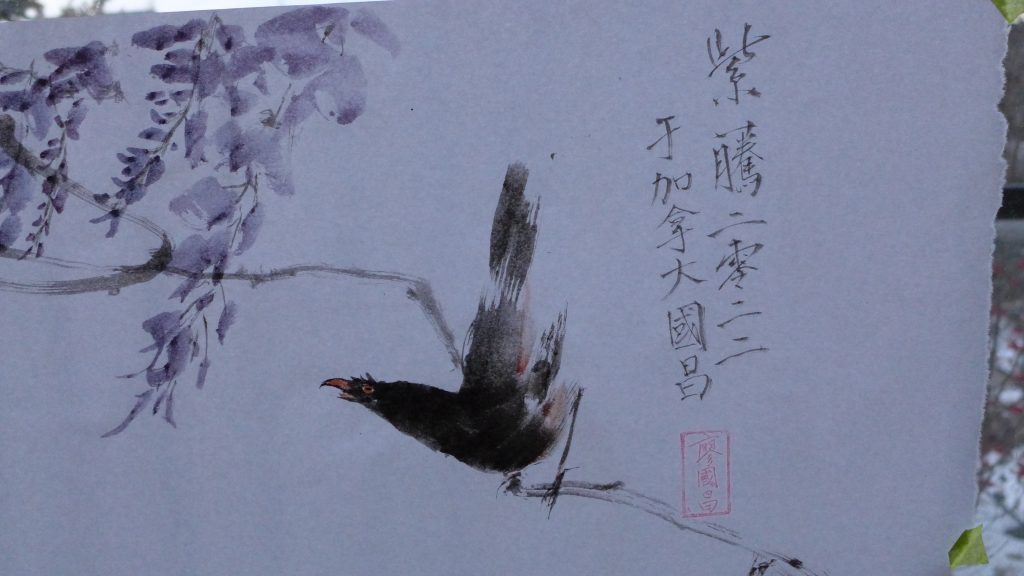 紫騰二零二二
于加拿大國昌
廖國昌